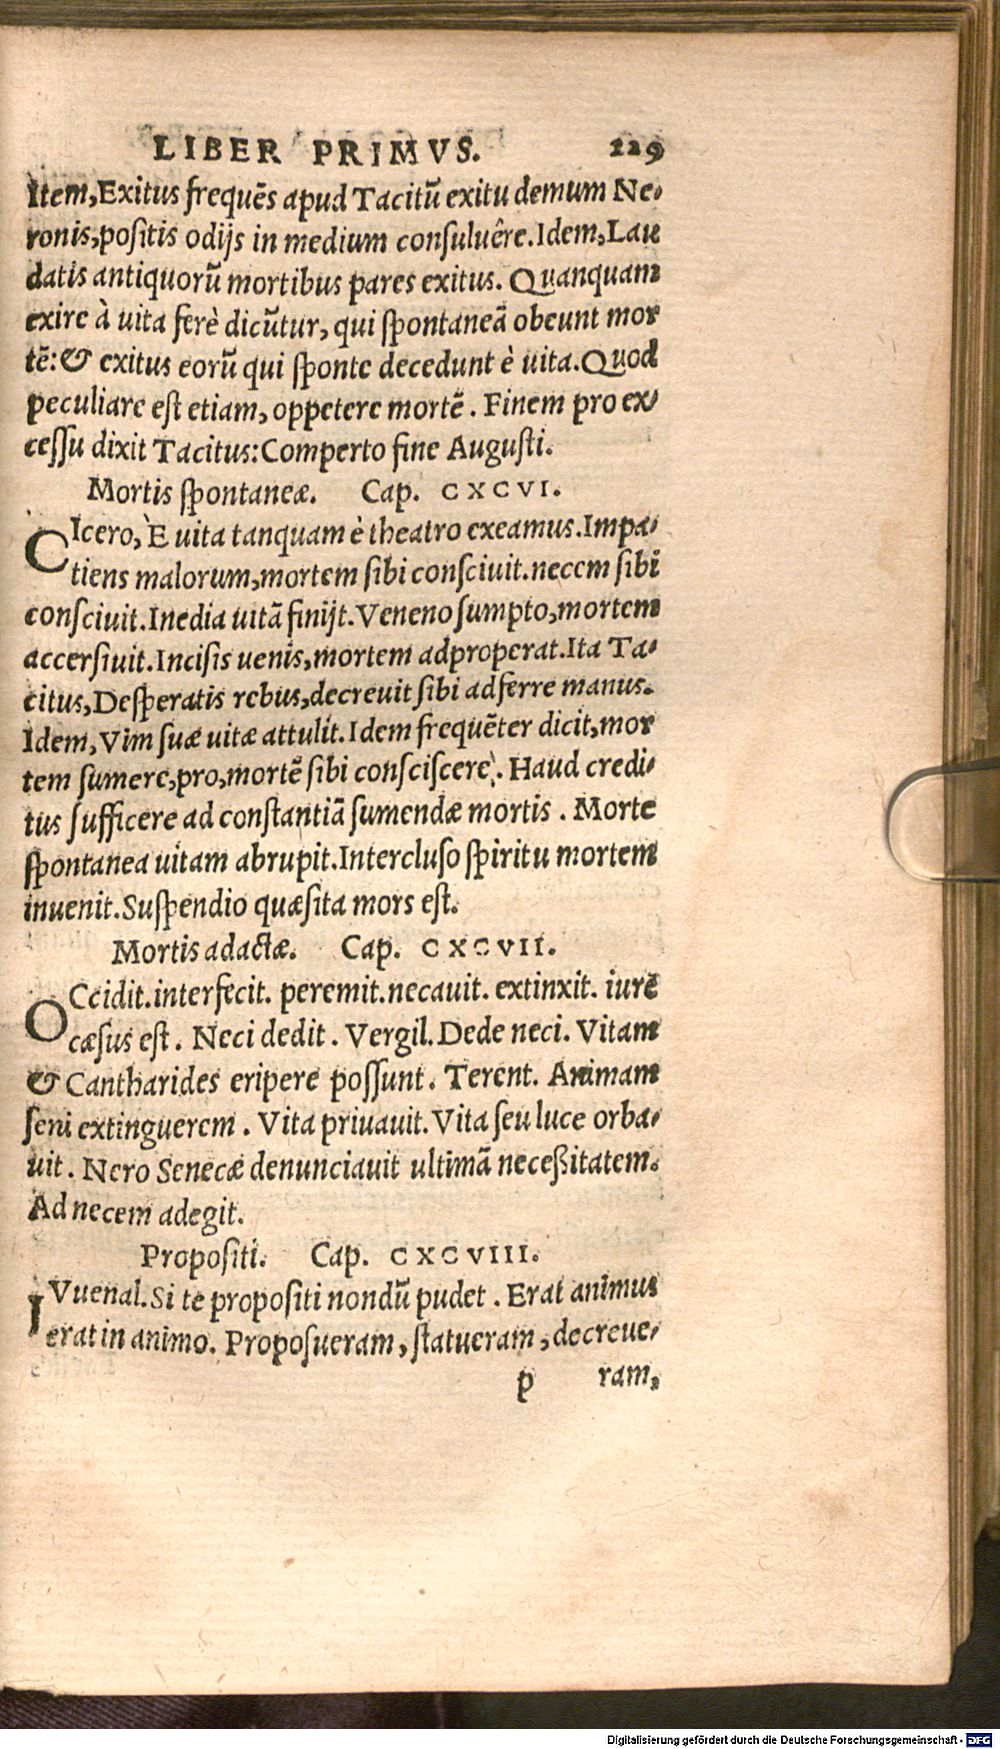 LIBER PRIMVS. 229
Item, Exitus frequẽs apud Tacitũ exitu demum Ne-
ronis, positis odijs in medium consuluêre. Idem, Lau
datis antiquorũ mortibus pares exitus. Quanquam
exire à uita ferè dicũtur, qui spontaneã obeunt mor
tẽ: & exitus eorũ qui sponte decedunt è uita. Quod
peculiare est etiam, oppetere mortẽ. Finem pro ex-
cessu dixit Tacitus: Comperto fine Augusti.
Mortis spontaneæ. Cap. CXCVI.
CIcero, È uita tanquam è theatro exeamus. Impa-
tiens malorum, mortem sibi consciuit. necem sibi
consciuit. Inedia uitã finijt. Veneno sumpto, mortem
accersiuit. Incisis uenis, mortem adproperat. Ita Ta-
citus, Desperatis rebus, decreuit sibi adferre manus.
Idem, Vim suæ uitæ attulit. Idem frequẽter dicit, mor
tem sumere, pro, mortẽ sibi consciscere. Haud credi-
tus sufficere ad constantiã sumendæ mortis. Morte
spontanea uitam abrupit. Intercluso spiritu mortem
inuenit. Suspendio quæsita mors est.
Mortis adactæ. Cap. CXCVII.
OCcidit. interfecit. peremit. necauit. extinxit. iure
cæsus est. Neci dedit. Vergil. Dede neci. Vitam
& Cantharides eripere possunt. Terent. Animam
seni extinguerem. Vita priuauit. Vita seu luce orba-
uit. Nero Senecæ denunciauit ultimã neceßitatem.
Ad necem adegit.
Propositi. Cap. CXCVIII.
IVuenal. Si te propositi nondũ pudet. Erat animus
erat in animo. Proposueram, statueram, decreue-
p ram,
Digitalisierung gefördert durch die Deutsche Forschungsgemeinschaft - DFG